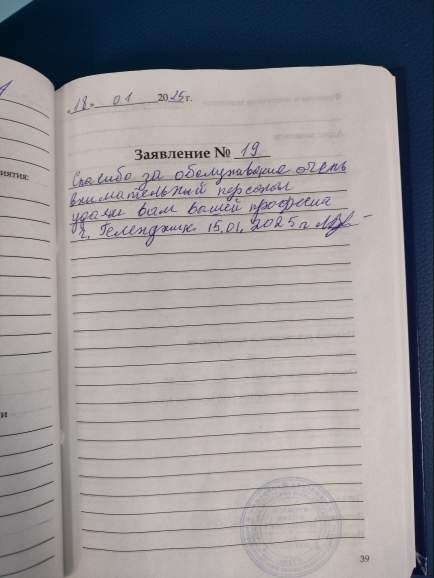 "18" 01 2025г.
Заявление № 19
Спасибо за обслуживание очень
внимательный персонал
удачи вам вашей професиа
г. Геленджик. 15.01.2025г
иятия:
и
39